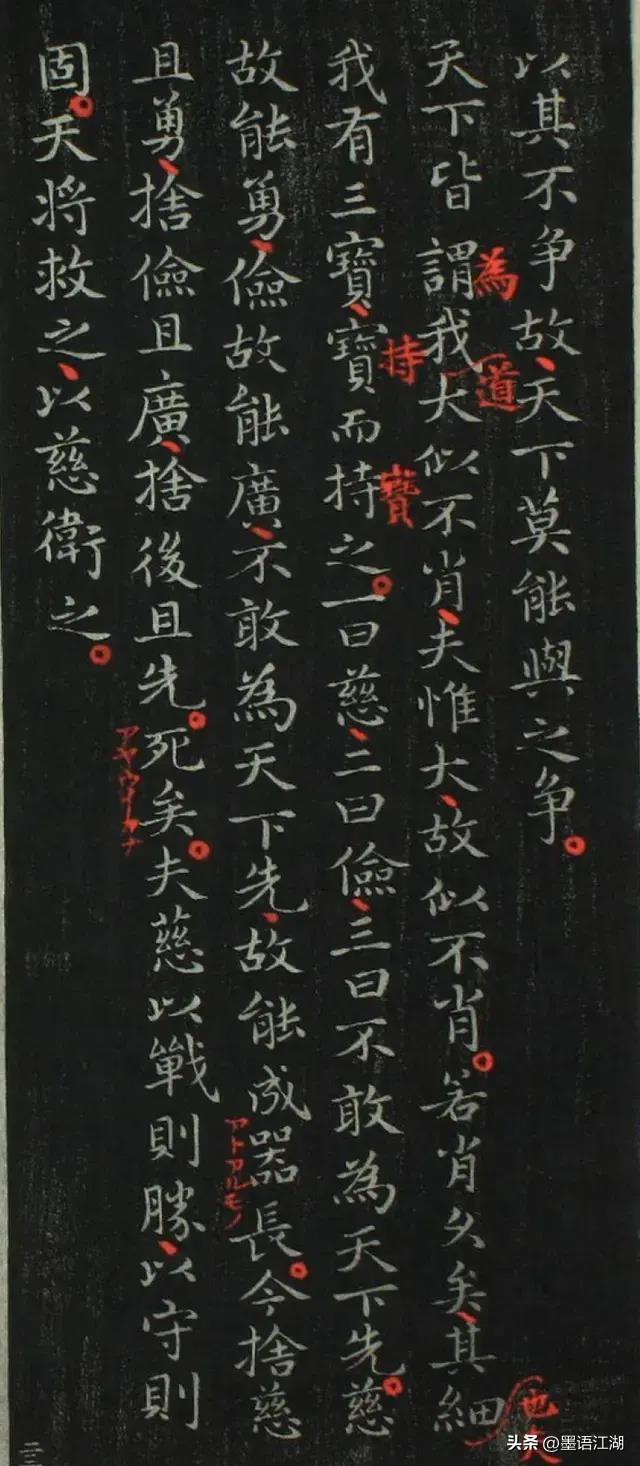 以其不争故天下莫能與之争
天下皆謂我大似不肖夫惟大故似不肖若肖久矣其細
為
道
我有三寶寶而持之一曰慈二曰儉三曰不敢為天下先慈
持
寶
故能勇儉故能廣不敢為天下先故能成器長今捨慈
アトアルモノ
且勇捨儉且廣捨後且先死矣夫慈以戰則勝以守則
固天將救之以慈衛之
二二
头条 @墨语江湖